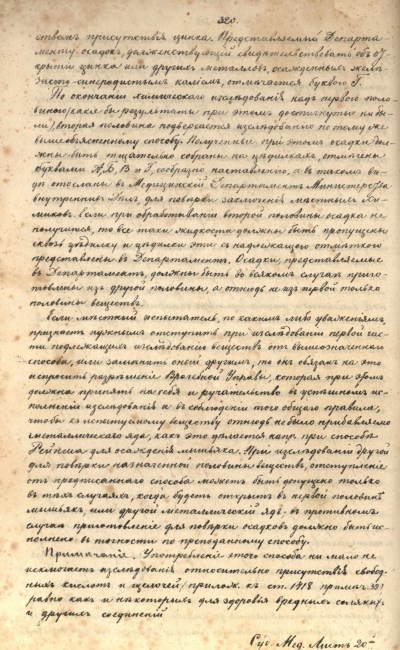 320.
ствомъ присутствія цинка. Представляемый Департа
менту осадокъ, долженствующій свидетельствовать объ от
крытіи цинка или другихъ металловъ, осажденныхъ желѣ
зисто-синеродистымъ каліемъ, отмѣчается буквою Г.
По окончаніи химическаго изслѣдованія надъ первою поло-
виною/какіе бы результаты при этомъ достигнуты ни бы-
ли/, вторая половина подвергается изслѣдованію по тому же
вышеобъясненному способу. Полученные при этомъ осадки дол-
жны быть тщательно собраны на цѣдилкахъ, отмѣчены
буквами А, Б, В и Г, сообразно наставленію, а въ такомъ ви-
дѣ отосланы въ Медицинскій Департаментъ Министерства
внутреннихъ Дѣлъ, для повѣрки заключенія мѣстныхъ Хи-
миковъ. Если при обработываніи второй половины осадка не
получится, то все таки жидкость должны быть пропущены
сквозь цѣдилку и цѣдилки эти съ надлежащею отмѣткою
представлены въ Департаментъ. Осадки, представляемые
въ Департаментъ, должны быть во всякомъ случаѣ приго-
товлены изъ другой половины, а отнюдь не изъ первой только
половины веществъ.
Если мѣстный испытатель, по какимъ либо уваженіямъ,
признаетъ нужнымъ отступить при изслѣдованіи первой час-
ти подлежащихъ изслѣдованію веществъ отъ вышеозначеннаго
способа, или замѣнить оный другимъ, то онъ обязанъ на это
испросить разрѣшеніе Врачебной Управы, которая при этомъ
должна принять на себя и ручательство въ успѣшномъ ис-
полненіи изслѣдованія и въ соблюденіи того общаго правила,
чтобы къ испытуемому веществу отнюдь не было прибавляемо
металлическаго яда, какъ это дѣлается напр. при способѣ
Рейнша для осажденія мышьяка. При изслѣдованіи другой
для повѣрки назначенной половины веществъ, отступленіе
отъ предписаннаго способа можетъ быть допущено только
въ тѣхъ случаяхъ, когда будетъ открытъ въ первой половинѣ
мышьякъ или другой металлическій ядъ. въ противномъ
случаѣ приготовленіе для повѣрки осадковъ должно быть ис-
полнено въ точности по преподанному способу.
Примѣчаніе. Употребленіе этого способа ни мало не
исключаетъ изслѣдованія относительно присутствія свобод-
ныхъ кислотъ и щелочей/прилож. къ ст. 1418 примѣч. 32/
равно какъ и некоторыхъ для здоровья вредныхъ соляныхъ
и другихъ соединеній
Суд. Мед. Листъ 20-